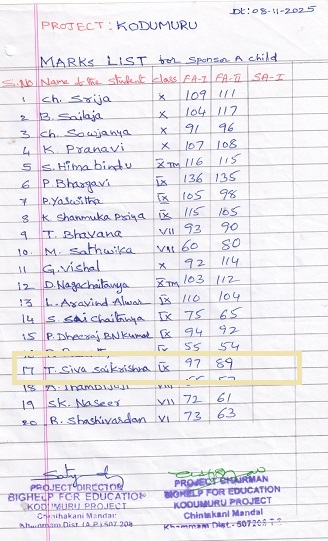 Dt: 08-11-2025
PROJECT: KODUMURU
MARKS LIST for Sponsor A child
S.No Name of the student class FA-I FA-II SA-I
1 Ch. Srija X 109 111
2 B. Sailaja X 104 117
3 Ch. Sowjanya X 91 96
4 K. Pranavi X 107 108
5 S. Himabindu X TM 116 115
6 P. Bhargavi IX 136 135
7 P. Yaswitha IX 105 98
8 K Shanmuka Priya IX 115 105
9 T. Bhavana VII 93 90
10 M. Sathwika VII 60 80
11 G. Vishal X 92 114
12 D. Nagachaitanya X TM 103 112
13 L. Aravind Alwar IX 110 104
14 S. Sai Chaitanya IX 75 65
15 P. Dheeraj BN Kumar IX 94 92
55 54
17 T. Siva Saikrishna IX 97 89
18
19 SK. Naseer VII 72 61
20 B. Shashivardan VI 73 63
PROJECT DIRECTOR
BIGHELP FOR EDUCATION
KODUMURU PROJECT
Chinthakani Mandal
Khammam Dist. (A.P) 507 208
PROJECT CHAIRMAN
BIGHELP FOR EDUCATION
KODUMURU PROJECT
Chintakani Mandal
Khammam Dist.-